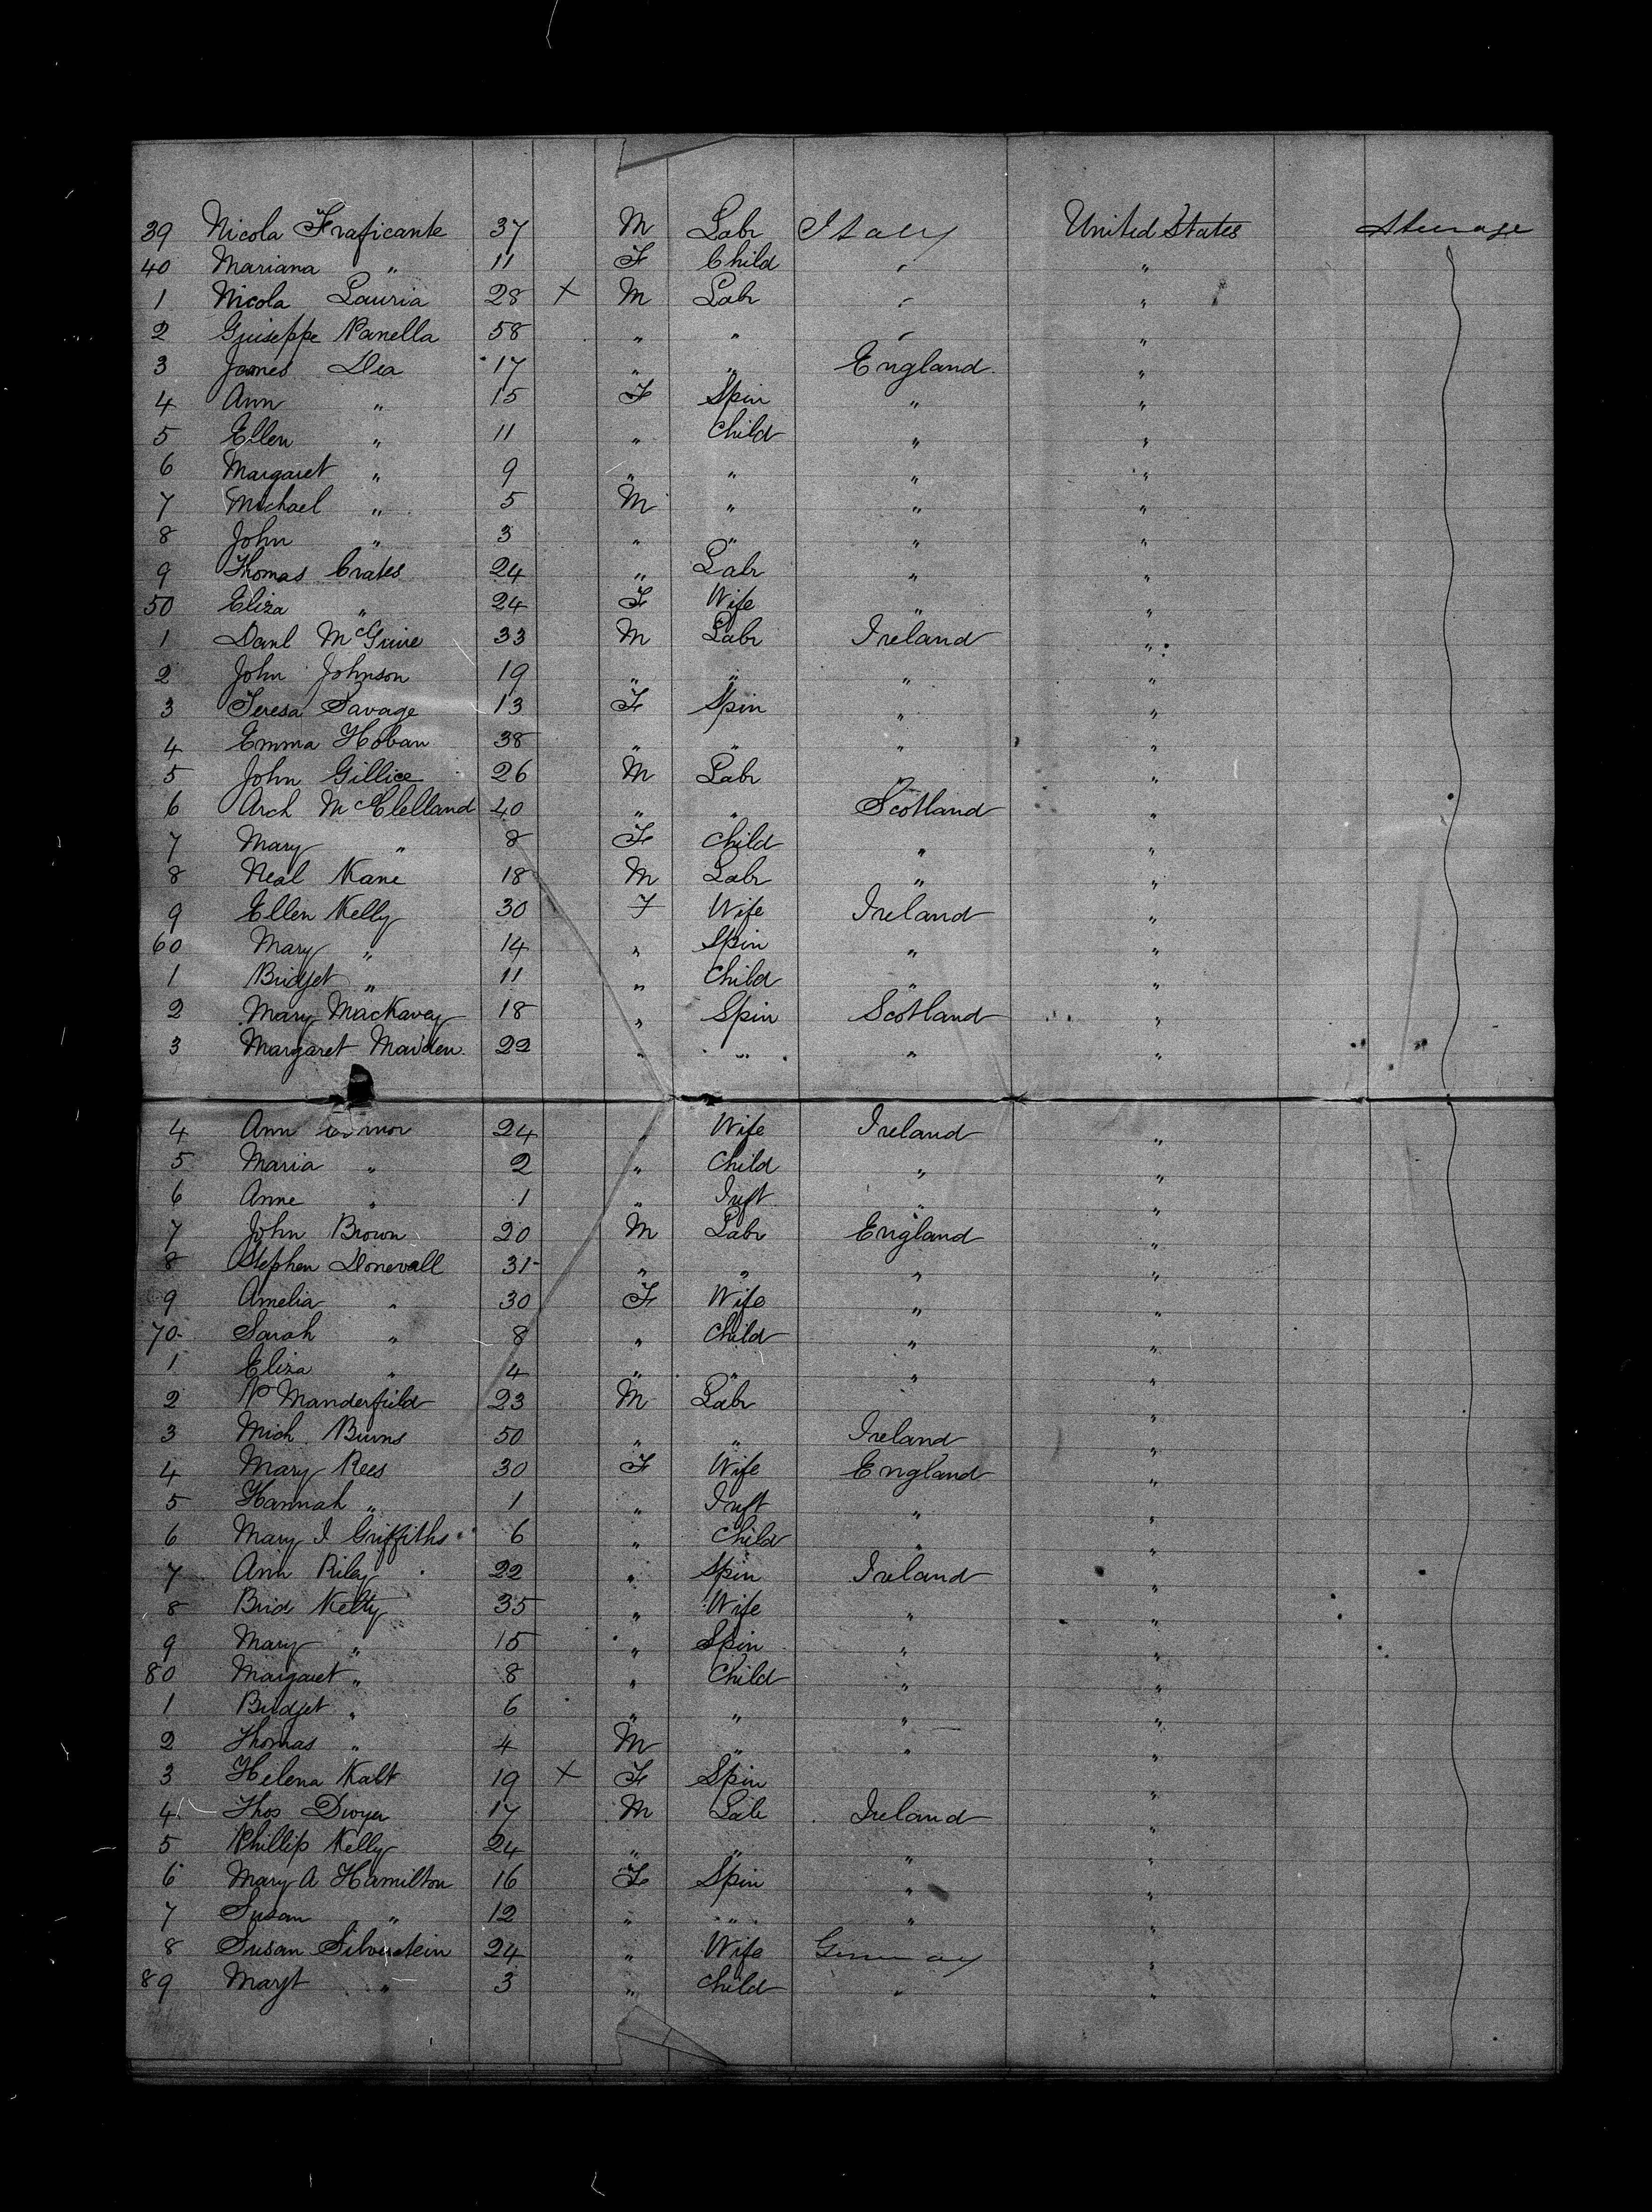 39 Nicola Traficante 37 M Labr Italy United States Steerage
40 Mariana " 11 F Child " "
1 Nicola Lauria 28 X M Labr " "
2 Guiseppe Panella 58 " " " "
3 James Dea 17 " " England "
4 Ann " 15 F Spin " "
5 Ellen " 11 " Child " "
6 Margaret " 9 " " " "
7 Michael " 5 M " " "
8 John " 3 " " " "
9 Thomas Crates 24 " Labr " "
50 Eliza " 24 F Wife " "
1 Danl McGuire 33 M Labr Ireland "
2 John Johnson 19 " " " "
3 Teresa Savage 13 F Spin " "
4 Emma Hoban 38 " " " "
5 John Gillice 26 M Labr " "
6 Arch McClelland 40 " " Scotland "
7 Mary " 8 F Child " "
8 Neal Kane 18 M Labr " "
9 Ellen Kelly 30 F Wife Ireland "
60 Mary " 14 " Spin " "
1 Bridget " 11 " Child " "
2 Mary Mackavey 18 " Spin Scotland "
3 Margaret Maiden 22 " " " "
4 Ann 24 " Wife Ireland "
5 Maria " 2 " Child " "
6 Anne " 1 " Inft " "
7 John Brown 20 M Labr England "
8 Stephen Donevall 31 " " " "
9 Amelia " 30 F Wife " "
70 Sarah " 8 " Child " "
1 Eliza " 4 " " " "
2 P Manderfield 23 M Labr "
3 Mich Burns 50 " " Ireland "
4 Mary Rees 30 F Wife England "
5 Hannah " 1 " Inft " "
6 Mary J Griffiths 6 " Child " "
7 Ann Riley 22 " Spin Ireland "
8 Brid Kelty 35 " Wife " "
9 Mary " 15 " Spin " "
80 Margaret " 8 " Child " "
1 Bridget " 6 " " " "
2 Thomas " 4 M " " "
3 Helena Kalt 19 X F Spin "
4 Thos Dwyer 17 M Labr Ireland "
5 Phillip Kelly 24 " " " "
6 Mary A Hamilton 16 F Spin " "
7 Susan " 12 " " " "
8 Susan Silverstein 24 " Wife Germany "
89 Margt " 3 " Child " "